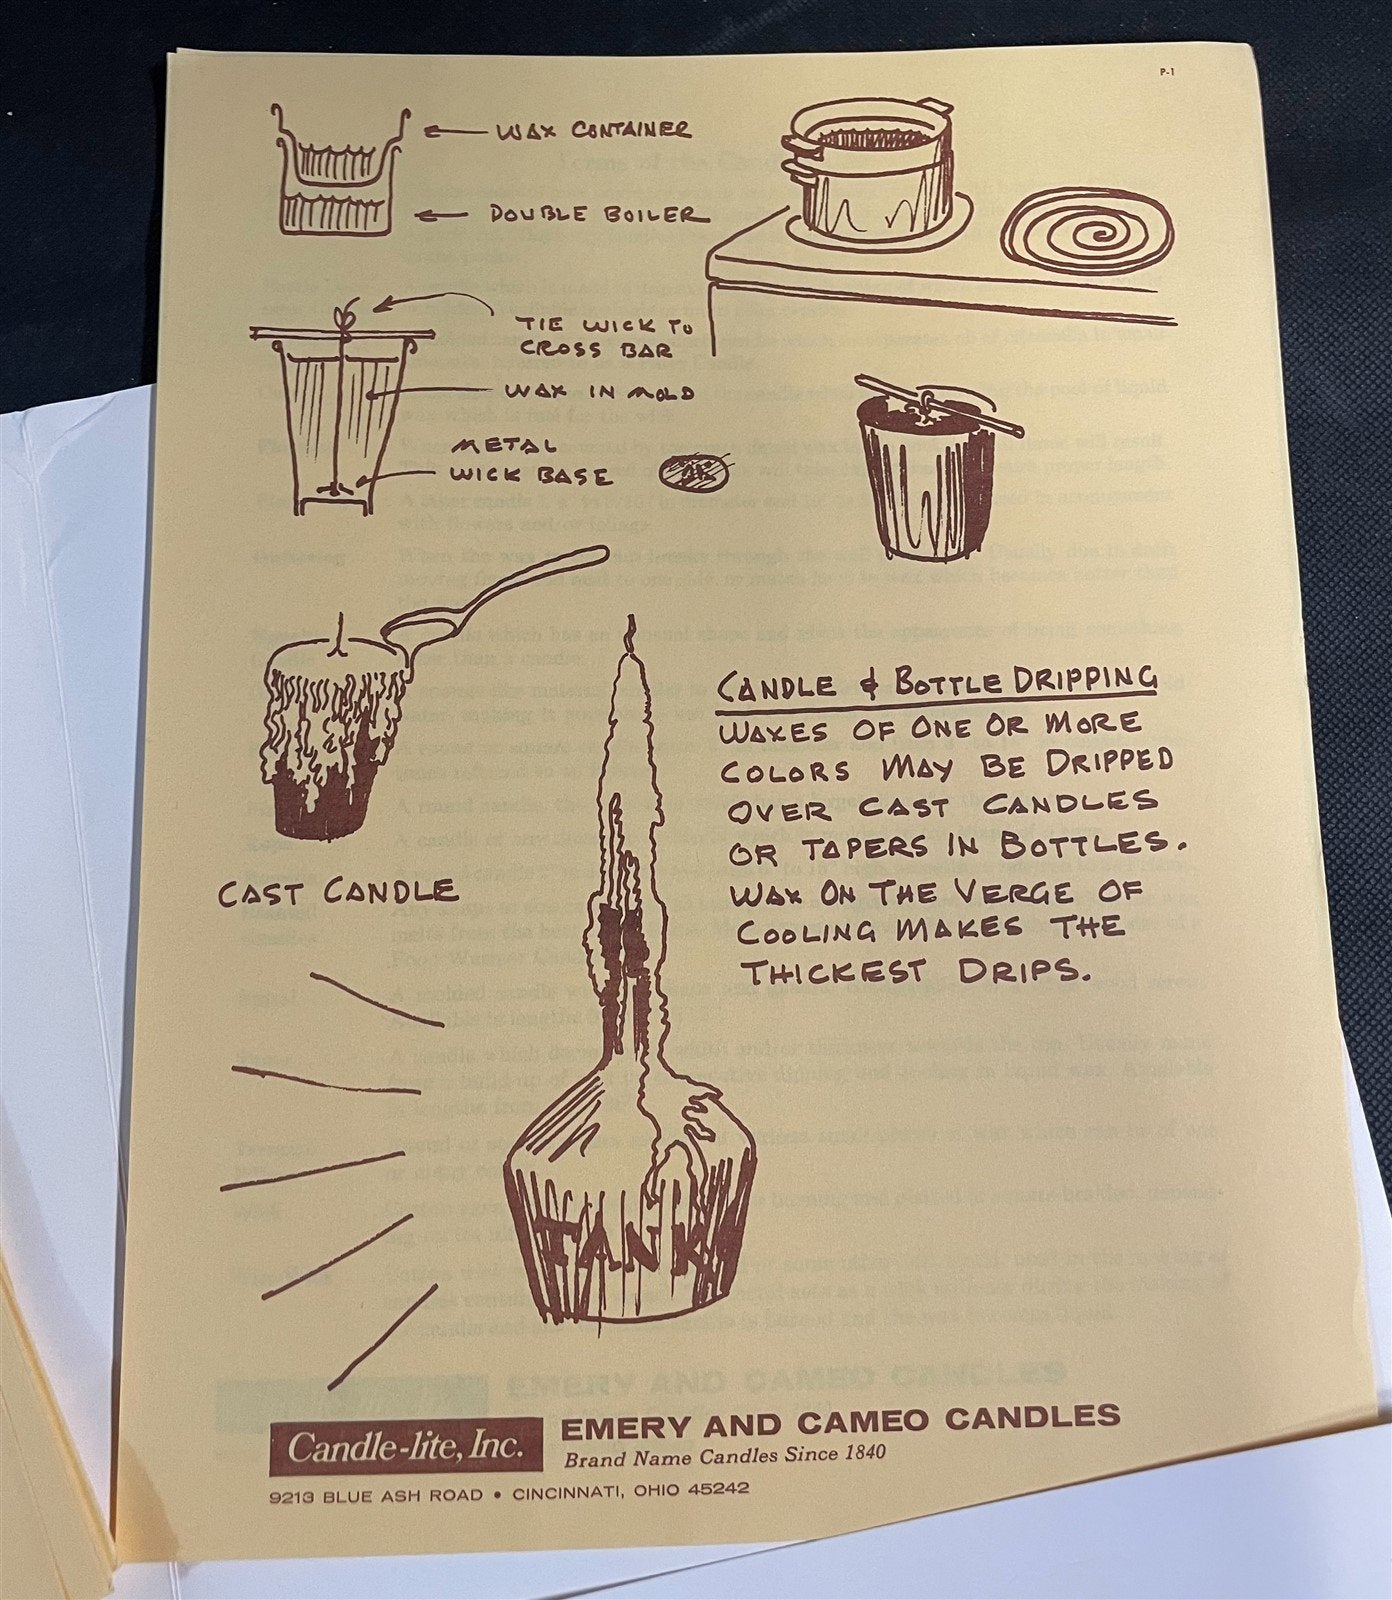 P-1
WAX CONTAINER
DOUBLE BOILER
TIE WICK TO
CROSS BAR
WAX IN MOLD
METAL
WICK BASE
CANDLE & BOTTLE DRIPPING
WAXES OF ONE OR MORE
COLORS MAY BE DRIPPED
OVER CAST CANDLES
OR TAPERS IN BOTTLES.
WAX ON THE VERGE OF
COOLING MAKES THE
THICKEST DRIPS.
CAST CANDLE
Candle-lite, Inc.
EMERY AND CAMEO CANDLES
Brand Name Candles Since 1840
9213 BLUE ASH ROAD • CINCINNATI, OHIO 45242